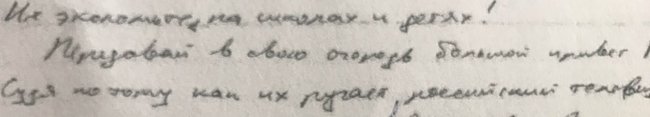 Не экономьте на школах и детях!
Передавай в свою очередь большой привет
Судя по тому как их ругает российский